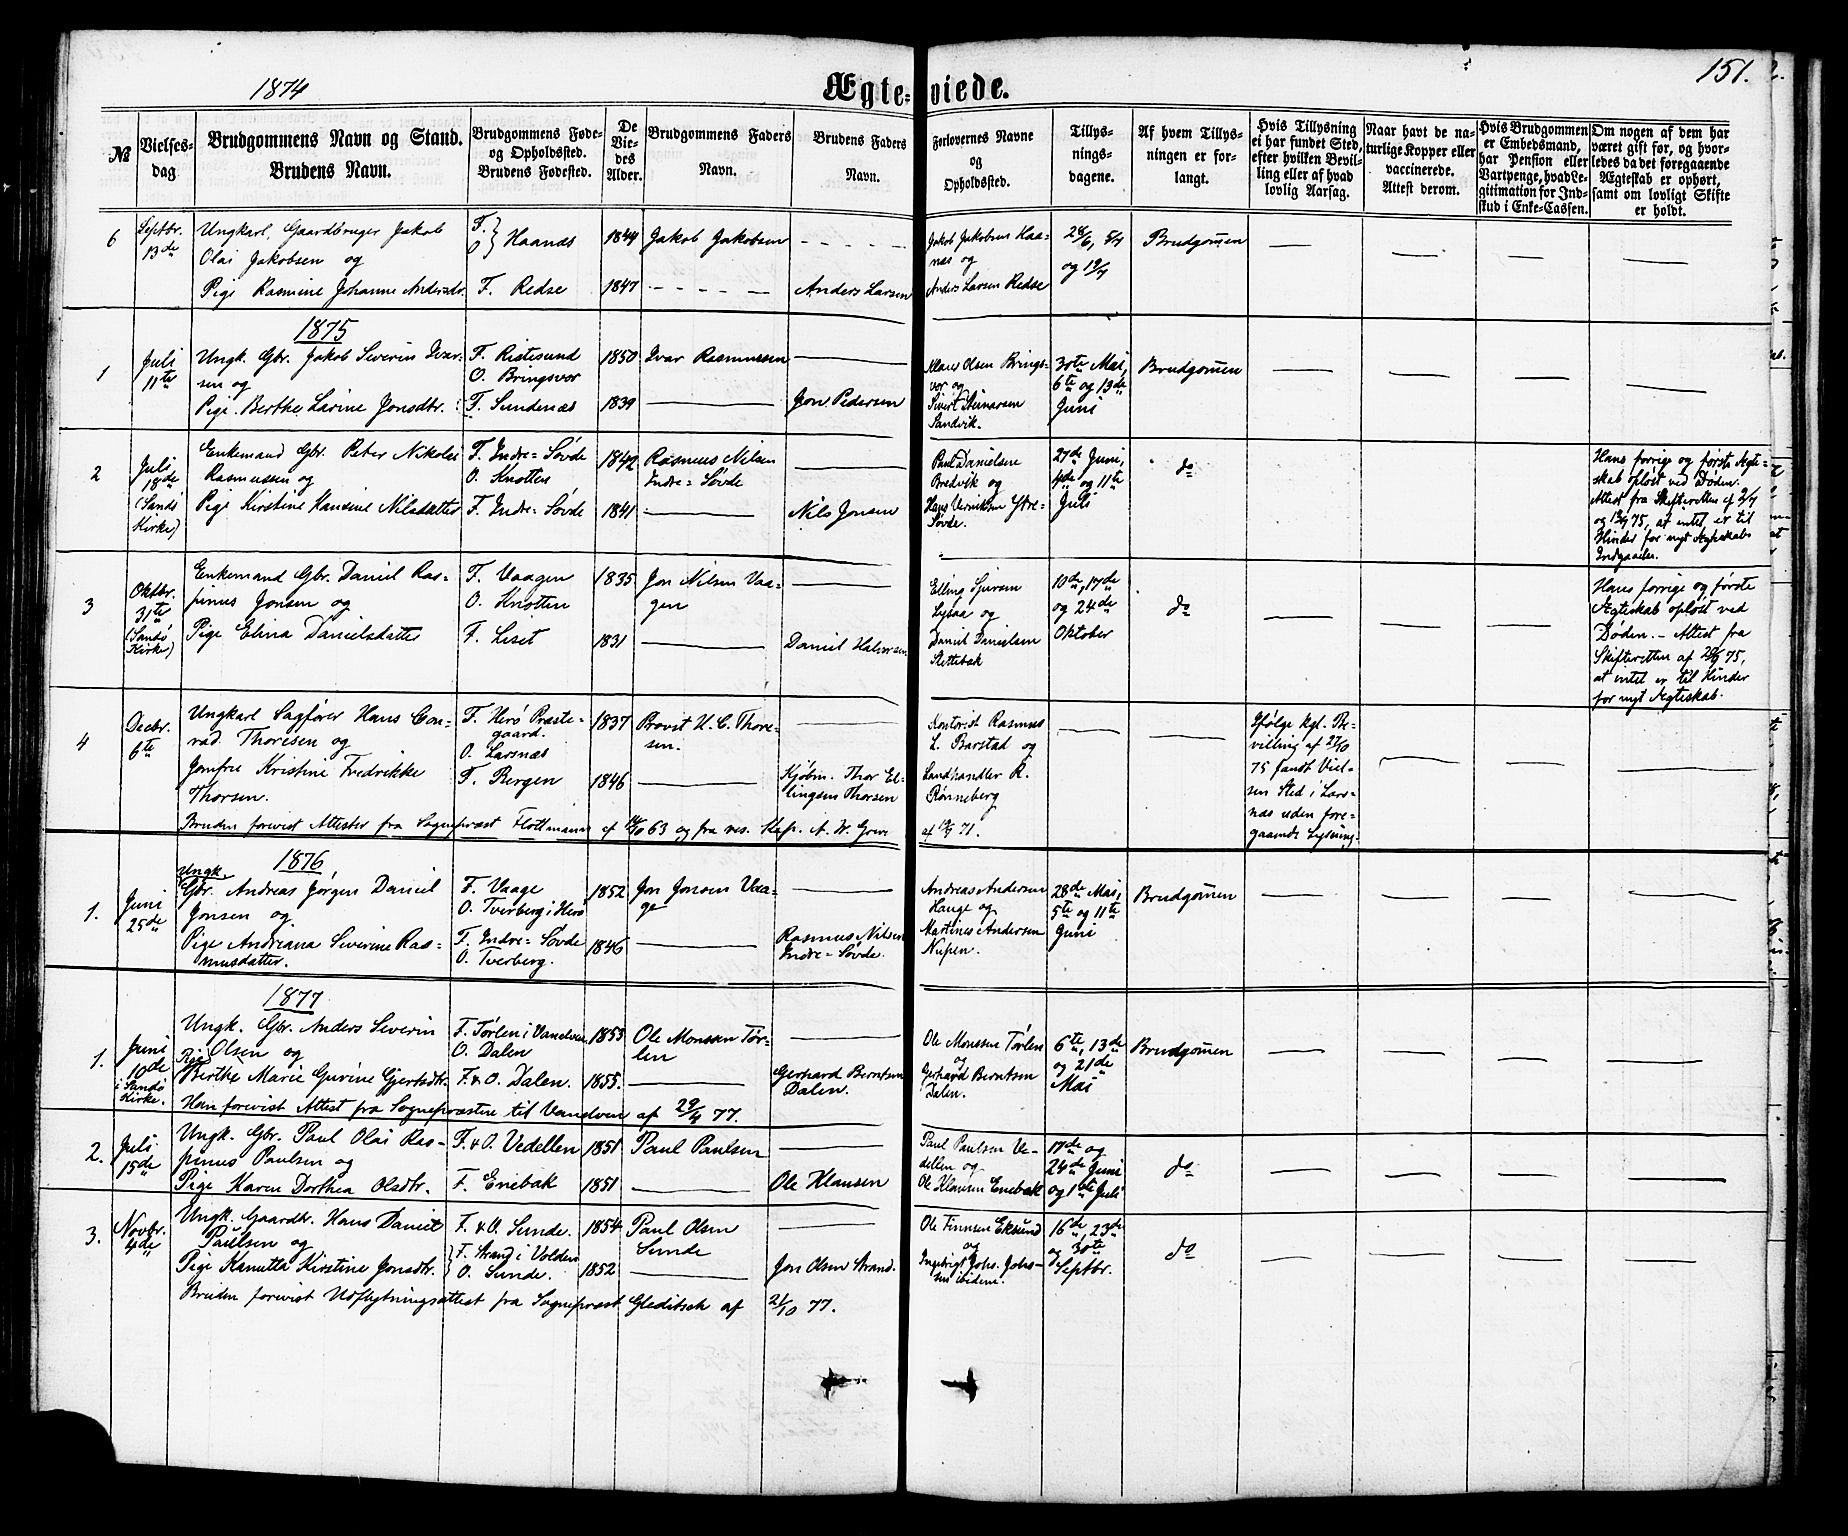 1874
Ægteviede.
151.
№
Vielses-
dag
Brudgommens Navn og Stand.
Brudens Navn.
Brudgommens Føde-
og Opholdssted.
Brudens Fødested.
De
Vie-
des
Alder.
Brudgommens Faders
Navn.
Brudens Faders
Navn.
Forlovernes Navne
og
Opholdssted.
Tillys-
nings-
dagene.
Af hvem Tillys-
ningen er for-
langt.
Hvis Tillysning
ei har fundet Sted,
efter hvilken Bevil-
ling eller af hvad
lovlig Aarsag.
Naar havt de na-
turlige Kopper eller
vaccinerede.
Attest derom.
Hvis Brudgommen
er Embedsmand,
har Pension eller
Vartpenge, hvad Le-
gitimation for Ind-
skud i Enke-Cassen.
Om nogen af dem har
været gift før, og hvor-
ledes da det foregaaende
Ægteskab er ophørt,
samt om lovligt Skifte
er holdt.
6
Septbr.
13de
Ungkarl, Gaardbruger Jakob
Olai Jakobsen og
Pige Rasmine Johanne Andersdr.
F.
O. } Haanæs
F. Redse
1844
1847
Jakob Jakobsen
Anders Larsen
Jakob Jakobsen Haa-
næs og
Anders Larsen Redse
28/6, 5/7
og 19/7
Brudgommen
1875
1
Juli
11te
Ungk. Gbr. Jakob Severin Ivar-
sen og
Pige Berthe Larine Jonsdtr.
F. Ristesund
O. Bringsvor
F. Sundenæs
1850
1839
Ivar Rasmussen
Jon Pedersen
Klaus Olsen Brings-
vor og
Sivert Steinarsen
Sandvik.
30te Mai,
6te og 13de
Juni
Brudgommen
2
Juli
18de
(Sandø
Kirke)
Enkemand Gbr. Peter Nikolai
Rasmussen og
Pige Kirstine Hansine Nilsdatter
F. Indre-Søvde
O. Knotten
F. Indre-Søvde
1842
1841
Rasmus Nilsen
Indre-Søvde
Nils Jonsen
Paul Danielsen
Bredvik og
Hans Henriksen Ytre-
Søvde.
27de Juni,
4de og 11te
Juli
do
Hans forrige og første Ægte-
skab opløst ved Døden.
Attest fra Skifteretten af 2/7
og 12/7 75, at intet er til
Hinder for nyt Ægteskabs
Indgaaelse.
3
Oktbr.
31te
(Sandø
Kirke)
Enkemand Gbr. Daniel Ras-
pinus Jonsen og
Pige Elina Danielsdatter
F. Vaagen
O. Knotten
F. Liset
1835
1831
Jon Nilsen Vaa-
gen
Daniel Halvorsen
Elling Sjursen
Lysaa og
Daniel Danielsen
Slettebak
10de, 17de
og 24de
Oktober
do
Hans forrige og første
Ægteskab opløst ved
Døden. – Attest fra
Skifteretten af 28/9 75,
at intet er til Hinder
for nyt Ægteskab.
4
Decbr.
6te
Ungkarl Sagfører Hans Con-
rad Thoresen og
Jomfru Kristine Fredrikke
Thorsen.
F. Herø Præste-
gaard.
O. Larsnæs
F. Bergen
1837
1846
Provst H. C. Thore-
sen.
Kjøbm. Thor El-
lingsen Thorsen
Kontorist Rasmus
L. Barstad og
Landhandler R.
Rønneberg
Ifølge kgl. Be-
villing af 27/10
75 fandt Viel-
sen Sted i Lars-
næs uden fore-
gaaende Lysning.
Bruden forevist Attester fra Sogneprest Flottmann af 14/10 63 og fra res. Kap. A. W. Greve
af 19/9 71.
1876
1.
Juni
25de
Ungk.
Gbr. Andreas Jørgen Daniel
Jonsen og
Pige Andriana Severine Ras-
musdatter.
F. Vaage
O. Tverberg i Herø
F. Indre-Søvde
O. Tverberg.
1852
1846
Jon Jonsen Vaa-
ge
Rasmus Nilsen
Indre-Søvde.
Andreas Andersen
Hauge og
Martines Andersen
Nupen.
28de Mai,
5te og 11te
Juni
Brudgommen
1877
1.
Juni
10de
i Sandø
Kirke.
Ungk. Gbr. Anders Severin
Olsen og
Pige
Berthe Marie Gurine Gjertsdtr.
F. Tørlen i Vanelven
O. Dalen
F. & O. Dalen.
1853
1855.
Ole Monssen Tør-
len
Gerhard Berntsen
Dalen.
Ole Monssen Tørlen
og
Gerhard Berntsen
Dalen.
6te, 13de
og 21de
Mai
Brudgommen
Han forevist Attest fra Sognepræsten til Vanelven af 29/4 77.
2.
Juli
15de
Ungk. Gbr. Paul Olai Ras-
pinus Paulsen og
Pige Karen Dorthea Olsdtr.
F. & O. Vedellen
F. Enebak
1851
1851
Paul Paulsen
Ole Klausen
Paul Paulsen Ve-
dellen og
Ole Klausen Enebak
17de og
24de Juni
og 1ste Juli
do
3.
Novbr.
4de
Ungk. Gaardbr. Hans Daniel
Paulsen og
Pige Kanutta Kirstine Jonsdtr.
F. & O. Sunde.
F. Strand i Volden
O. Sunde.
1854
1852
Paul Olsen
Sunde
Jon Olsen Strand.
Ole Finnsen Eksund
og
Ingebrigt Johs. Johs-
sen ibidem.
16de, 23de
og 30te
Septbr.
do
Bruden forevist Udflytningsattest fra Sogneprest Gleditsch af 21/10 77.